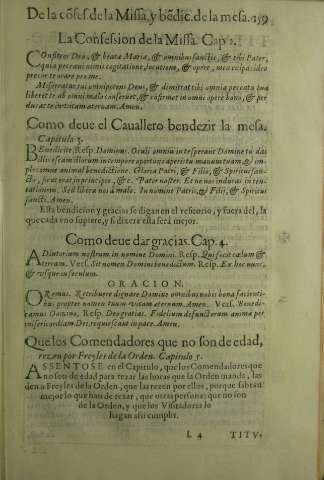 De la cõfes. de la Missa, y bẽdic. de la mesa. 159
La Confession de la Missa. Cap 2.
Confiteor Deo, & beata Maria, & omnibus sanctis, & tibi Pater,
quia peccaui nimis cogitatione, locutione, & opere, mea culpa: ideo
precor te orare pro me.
Misereatur tui omnipotens Deus, & dimittat tibi omnia peccata tua
liberet te ab omni malo conseruet, & confirmet in omni opere bono, & per
ducat te in vitam aeternam. Amen.
Como deue el Cauallero bendezir la mesa.
Capitulo 3.
Benedicite, Resp. Dominus. Oculi omnia in te sperant Domine tu das
illis escam illorum in tempore oportuno aperis tu manum tuam, & im
ples omne animal benedictione. Gloria Patri, & Filio, & Spiritui san-
cto, sicut erat in principio, & c. Pater noster. Et ne nos inducas in ten-
tationem. Sed libera nos à malo. In nomine Patris, & Filij, & Spiritus
sancti. Amen.
Esta bendicion y gracias se digan en el refitorio, y fuera del, la
que cada vno supiere, y si dixere esta será mejor.
Como deue dar gracias. Cap. 4.
Adiutorium nostrum in nomine Domini. Resp. Qui fecit cælum &
terram. Vers. Sit nomen Domini benedictum. Resp. Ex hoc nunc,
& vsque in seculum.
ORACION.
Oremus. Retribuere dignare Domine omnibus nobis bona facienti-
bus propter nomen tuum vitam æternam. Amen. Vers. Benedi-
camus Domino, Resp. Deo gratias. Fidelium defunctorum anima per
misericordiam Dei requiescant in pace. Amen.
Que los Comendadores que no son de edad,
rezen por Freyles de la Orden. Capitulo 5.
ASSENTOSE en el Capitulo, que los Comendadores que
no son de edad para rezar las horas que la Orden manda, las
den a Freyles de la Orden, que las rezen por ellos, porque sabran
mejor lo que han de rezar, que otras personas: que no son
de la Orden, y que los Visitadores lo
hagan assi cumplir.
L 4 TITV-